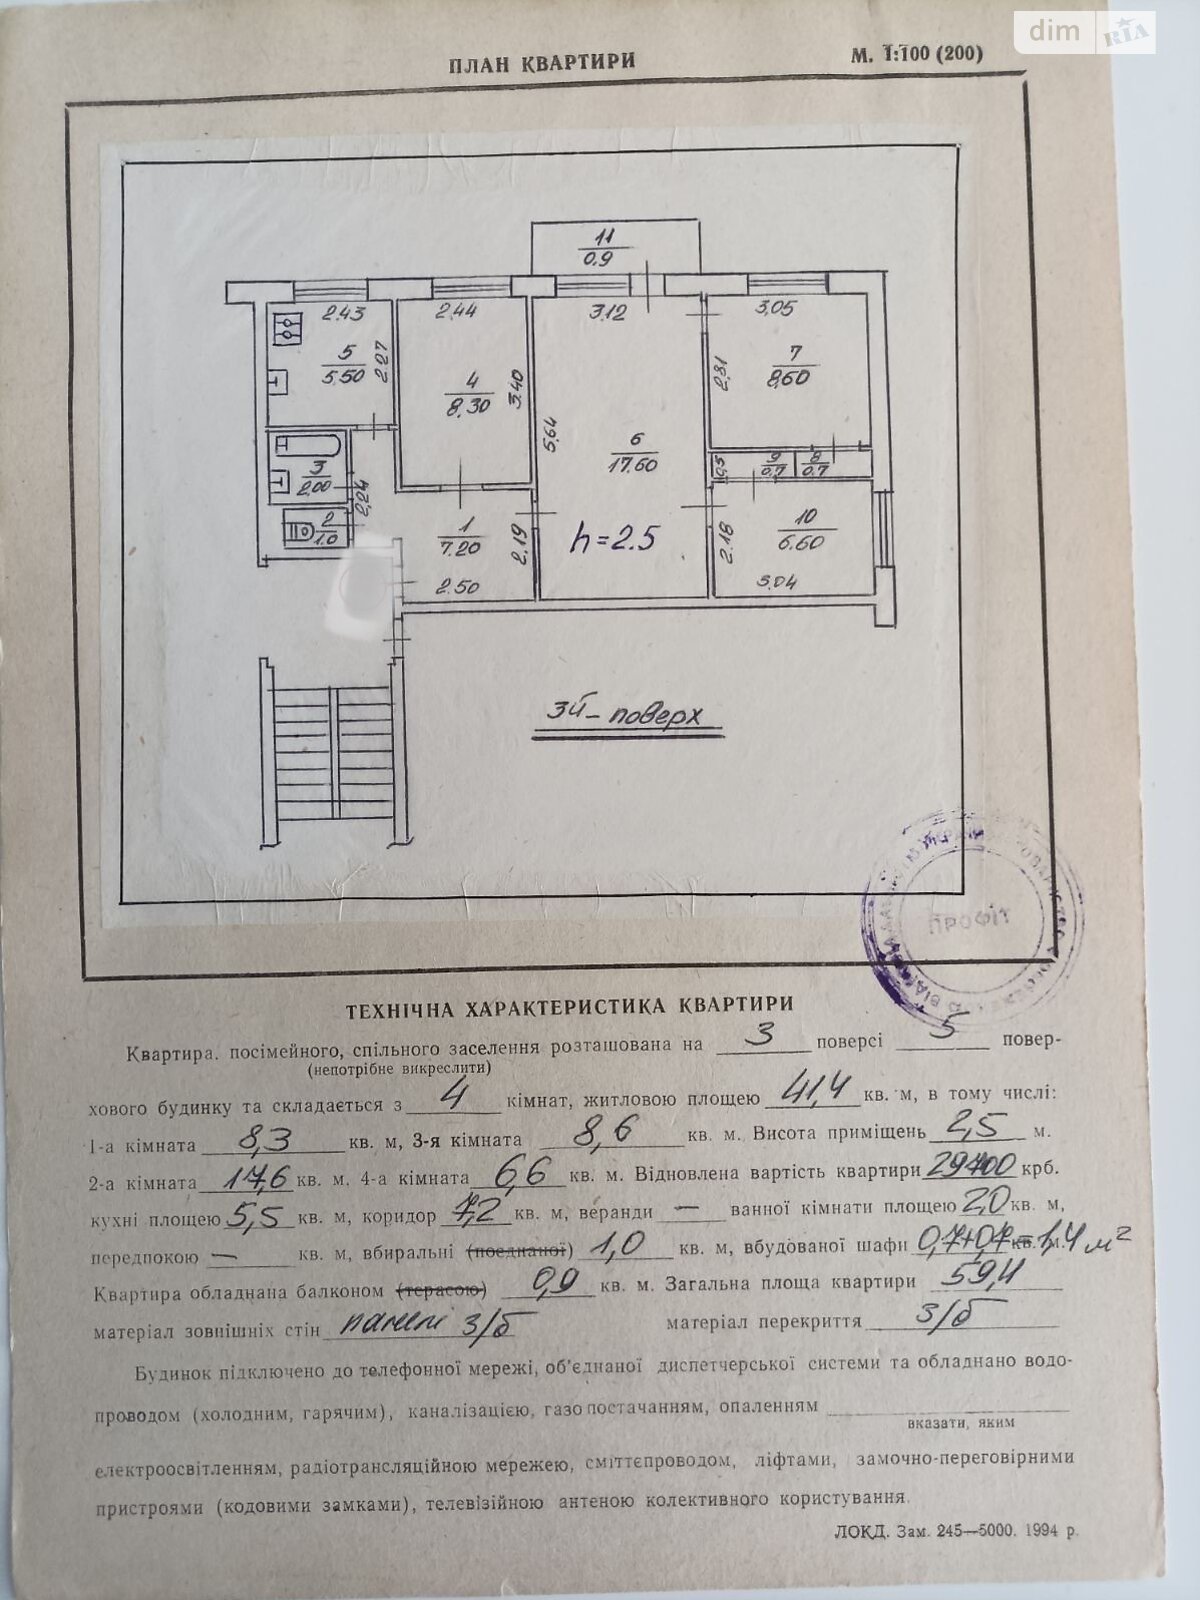 dim RIA
ПЛАН КВАРТИРИ
М. 1:100 (200)
11
0.9
2.43
2.44
3.12
3.05
5
5.50
2.27
4
8.30
3.40
5.64
6
17.60
2.81
7
8.60
3
2.00
2.24
0.5
9
0.7
8
0.7
2
1.0
1
7.20
2.19
2.50
h=2.5
2.18
10
6.60
3.04
3й- поверх
ПРОФІТ
ТЕХНІЧНА ХАРАКТЕРИСТИКА КВАРТИРИ
Квартира. посімейного, спільного заселення розташована на 3 поверсі 5 повер-
(непотрібне викреслити)
хового будинку та складається з 4 кімнат, житловою площею 41,4 кв. м, в тому числі:
1-а кімната 8,3 кв. м, 3-я кімната 8,6 кв. м. Висота приміщень 2,5 м.
2-а кімната 17,6 кв. м. 4-а кімната 6,6 кв. м. Відновлена вартість квартири 29700 крб.
кухні площею 5,5 кв. м, коридор 7,2 кв. м, веранди — ванної кімнати площею 2,0 кв. м,
передпокою — кв. м, вбиральні (поєднаної) 1,0 кв. м, вбудованої шафи 0,7+0,7=1,4 м²
Квартира обладнана балконом (терасою) 0,9 кв. м. Загальна площа квартири 59,4
матеріал зовнішніх стін панелі з/б матеріал перекриття з/б
Будинок підключено до телефонної мережі, об'єднаної диспетчерської системи та обладнано водо-
проводом (холодним, гарячим), каналізацією, газопостачанням, опаленням
вказати, яким
електроосвітленням, радіотрансляційною мережею, сміттєпроводом, ліфтами, замочно-переговірними
пристроями (кодовими замками), телевізійною антеною колективного користування.
ЛОКД. Зам. 245—5000. 1994 р.